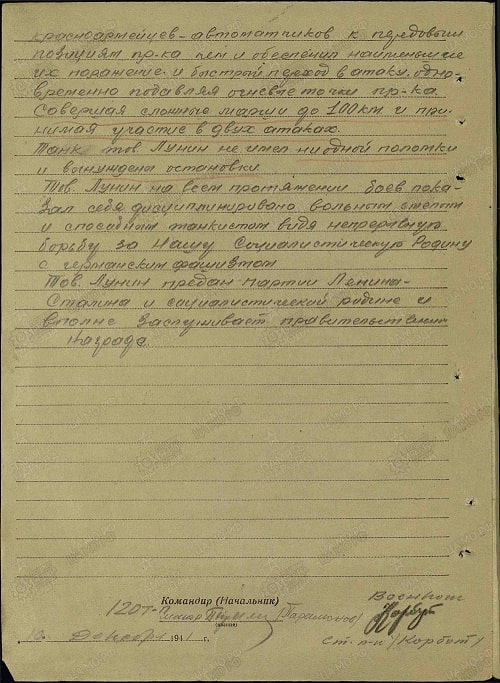 красноармейцев-автоматчиков к передовым
позициям пр-ка чем и обеспечил наименьшее
их поражение и быстрый переход в атаку, одно-
временно подавляя огневые точки пр-ка.
Совершая сложные марши до 100 км и при-
нимая участие в двух атаках.
Танк тов Лунин не имел ни одной поломки
и вынужден остановки.
Тов. Лунин на всем протяжении боев пока-
зал себя дисциплинировано вольным
и способным танкистом видя непрерывную
борьбу за Нашу Социалистическую Родину
с германским фашизмом
Тов. Лунин предан партии Ленина-
Сталина и социалистической родине и
вполне заслуживает правительствен
награда
Командир (Начальник)
Военком
120 т-п майор (Парамонов)
(звание)
10 декабря 1941 г.
ст. п-к (Корбут)